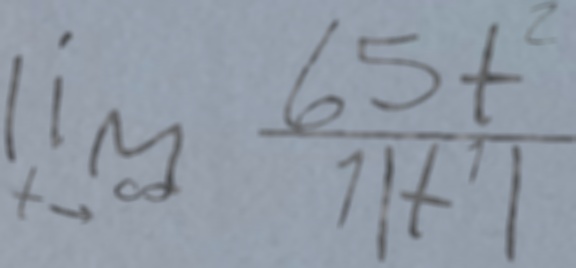 lim t→∞ 65t² / 1|t¹|